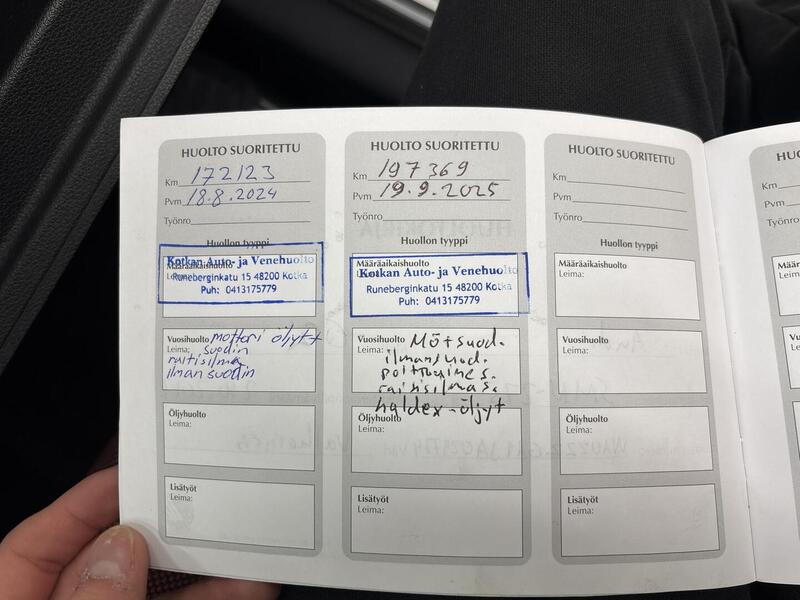 HUOLTO SUORITETTU
Km 172123
Pvm 18.8.2024
Työnro
Huollon tyyppi
Määräaikaishuolto
Leima:
Kotkan Auto- ja Venehuolto
Runeberginkatu 15 48200 Kotka
Puh: 0413175779
Vuosihuolto mottori öljyt +
Leima: suodin
raitisilma
ilman suodin
Öljyhuolto
Leima:
Lisätyöt
Leima:
HUOLTO SUORITETTU
Km 197369
Pvm 19.9.2025
Työnro
Huollon tyyppi
Määräaikaishuolto
Kotkan Auto- ja Venehuolto
Runeberginkatu 15 48200 Kotka
Puh: 0413175779
Vuosihuolto Mötsuod.
Leima: ilmansuod.
polttoaines.
raitisilmas.
haldex-öljyt
Öljyhuolto
Leima:
Lisätyöt
Leima:
HUOLTO SUORITETTU
Km
Pvm
Työnro
Huollon tyyppi
Määräaikaishuolto
Leima:
Vuosihuolto
Leima:
Öljyhuolto
Leima:
Lisätyöt
Leima:
HU
Km
Pvm
Työ
Määrä
Leima:
Vuosi
Leima
Öljyh
Leim
Lisä
Lei